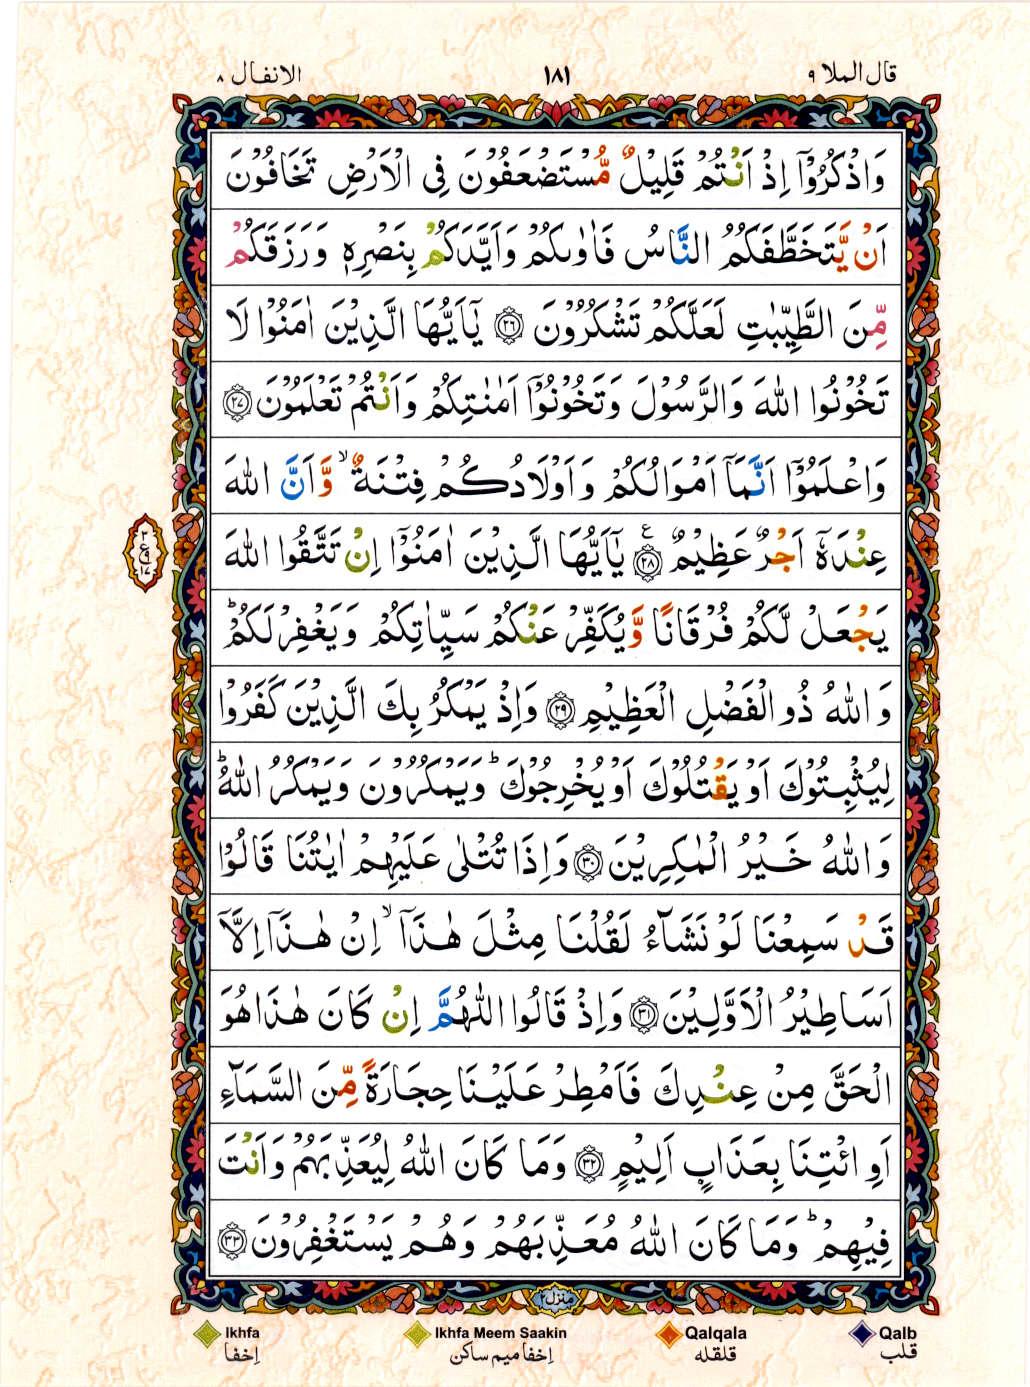 قال الملا ٩
١٨١
الانفال ٨
وَاذْكُرُوْۤا اِذْ اَنْتُمْ قَلِيْلٌ مُّسْتَضْعَفُوْنَ فِى الْاَرْضِ تَخَافُوْنَ
اَنْ يَّتَخَطَّفَكُمُ النَّاسُ فَاٰوٰىكُمْ وَاَيَّدَكُمْ بِنَصْرِهٖ وَرَزَقَكُمْ
مِّنَ الطَّيِّبٰتِ لَعَلَّكُمْ تَشْكُرُوْنَ ﴿٢٦﴾ يٰۤاَيُّهَا الَّذِيْنَ اٰمَنُوْا لَا
تَخُوْنُوا اللّٰهَ وَالرَّسُوْلَ وَتَخُوْنُوْۤا اَمٰنٰتِكُمْ وَاَنْتُمْ تَعْلَمُوْنَ ﴿٢٧﴾
وَاعْلَمُوْۤا اَنَّمَاۤ اَمْوَالُكُمْ وَاَوْلَادُكُمْ فِتْنَةٌ ۙ وَّاَنَّ اللّٰهَ
عِنْدَهٗۤ اَجْرٌ عَظِيْمٌ ﴿٢٨﴾ ع يٰۤاَيُّهَا الَّذِيْنَ اٰمَنُوْۤا اِنْ تَتَّقُوا اللّٰهَ
٣
ع
١٧
يَجْعَلْ لَّكُمْ فُرْقَانًا وَّيُكَفِّرْ عَنْكُمْ سَيِّاٰتِكُمْ وَيَغْفِرْ لَكُمْ ؕ
وَاللّٰهُ ذُو الْفَضْلِ الْعَظِيْمِ ﴿٢٩﴾ وَاِذْ يَمْكُرُ بِكَ الَّذِيْنَ كَفَرُوْا
لِيُثْبِتُوْكَ اَوْ يَقْتُلُوْكَ اَوْ يُخْرِجُوْكَ ؕ وَيَمْكُرُوْنَ وَيَمْكُرُ اللّٰهُ ؕ
وَاللّٰهُ خَيْرُ الْمٰكِرِيْنَ ﴿٣٠﴾ وَاِذَا تُتْلٰى عَلَيْهِمْ اٰيٰتُنَا قَالُوْا
قَدْ سَمِعْنَا لَوْ نَشَآءُ لَقُلْنَا مِثْلَ هٰذَاۤ ۙ اِنْ هٰذَاۤ اِلَّاۤ
اَسَاطِيْرُ الْاَوَّلِيْنَ ﴿٣١﴾ وَاِذْ قَالُوا اللّٰهُمَّ اِنْ كَانَ هٰذَا هُوَ
الْحَقَّ مِنْ عِنْدِكَ فَاَمْطِرْ عَلَيْنَا حِجَارَةً مِّنَ السَّمَآءِ
اَوِ ائْتِنَا بِعَذَابٍ اَلِيْمٍ ﴿٣٢﴾ وَمَا كَانَ اللّٰهُ لِيُعَذِّبَهُمْ وَاَنْتَ
فِيْهِمْ ؕ وَمَا كَانَ اللّٰهُ مُعَذِّبَهُمْ وَهُمْ يَسْتَغْفِرُوْنَ ﴿٣٣﴾
منزل ٢
Ikhfa
اِخفا
Ikhfa Meem Saakin
اِخفا میم ساکن
Qalqala
قلقله
Qalb
قلب